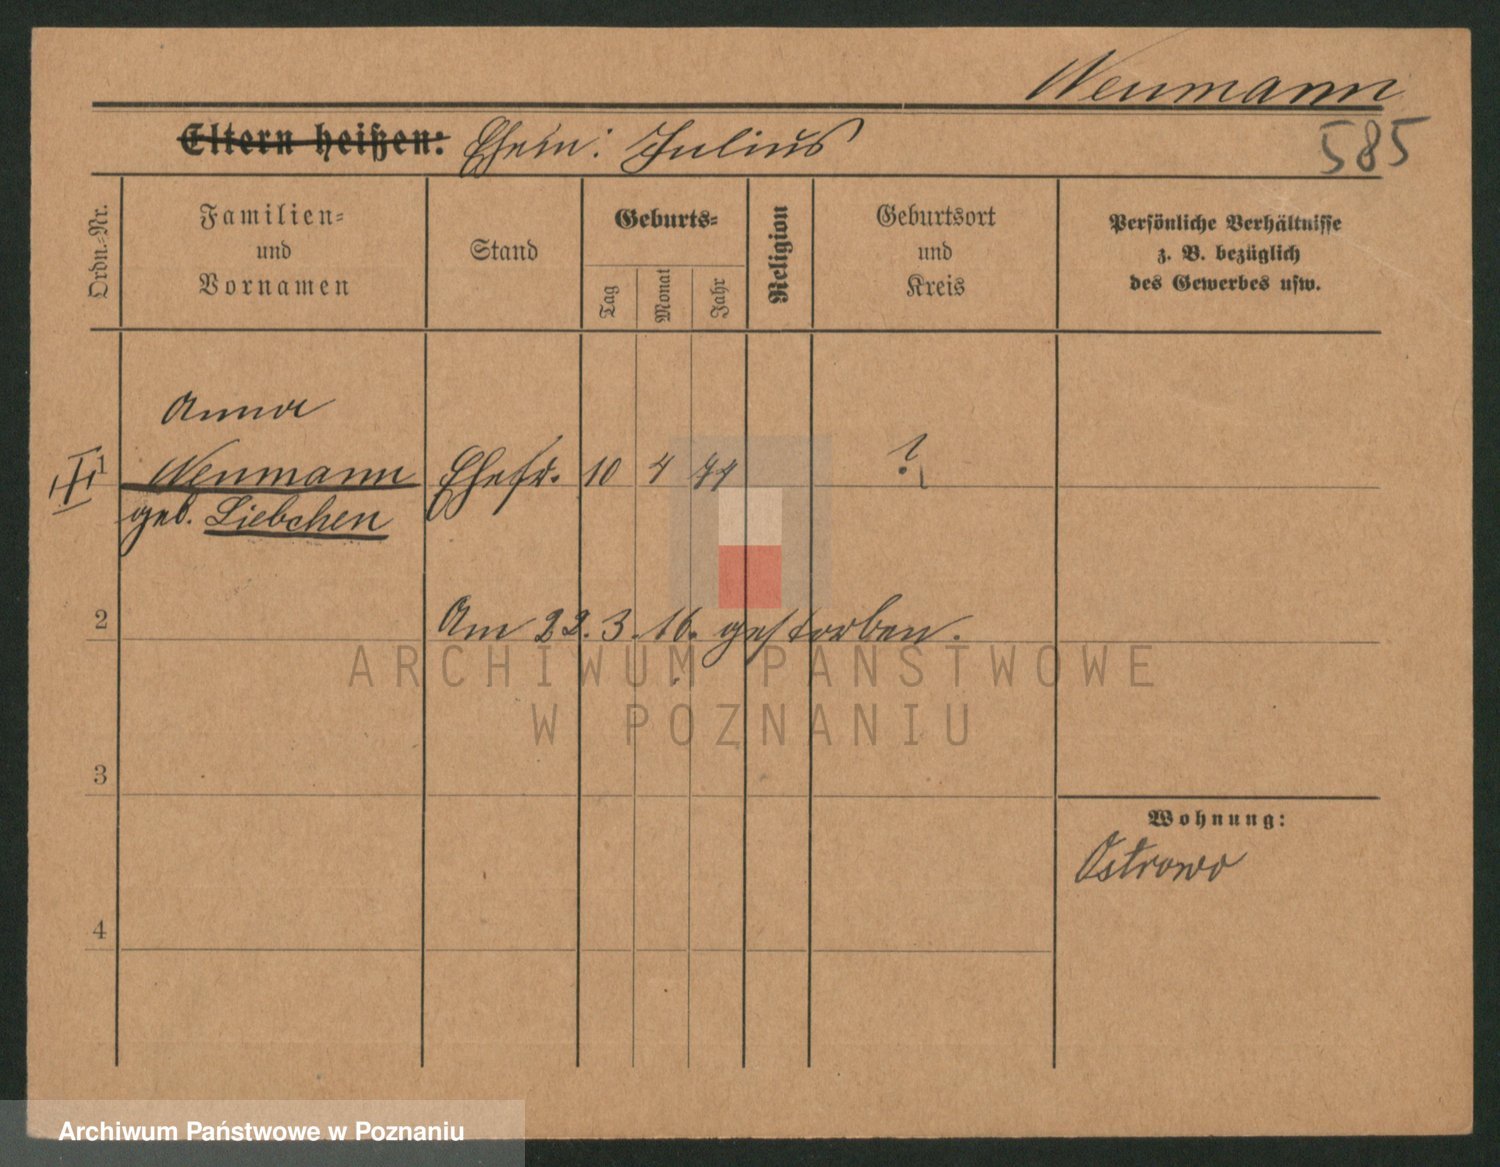 Neumann
Eltern heißen: Ehem: Julius
585
Ordn.-Nr.
Familien-
und
Vornamen
Stand
Geburts-
Tag
Monat
Jahr
Religion
Geburtsort
und
Kreis
Persönliche Verhältnisse
z. B. bezüglich
des Gewerbes usw.
Anna
1 Neumann Ehefr. 10 4 ?
geb. Liebchen
2 Am 22.3.16. gestorben.
ARCHIWUM PAŃSTWOWE
W POZNANIU
3
Wohnung:
Ostrowo
4
Archiwum Państwowe w Poznaniu